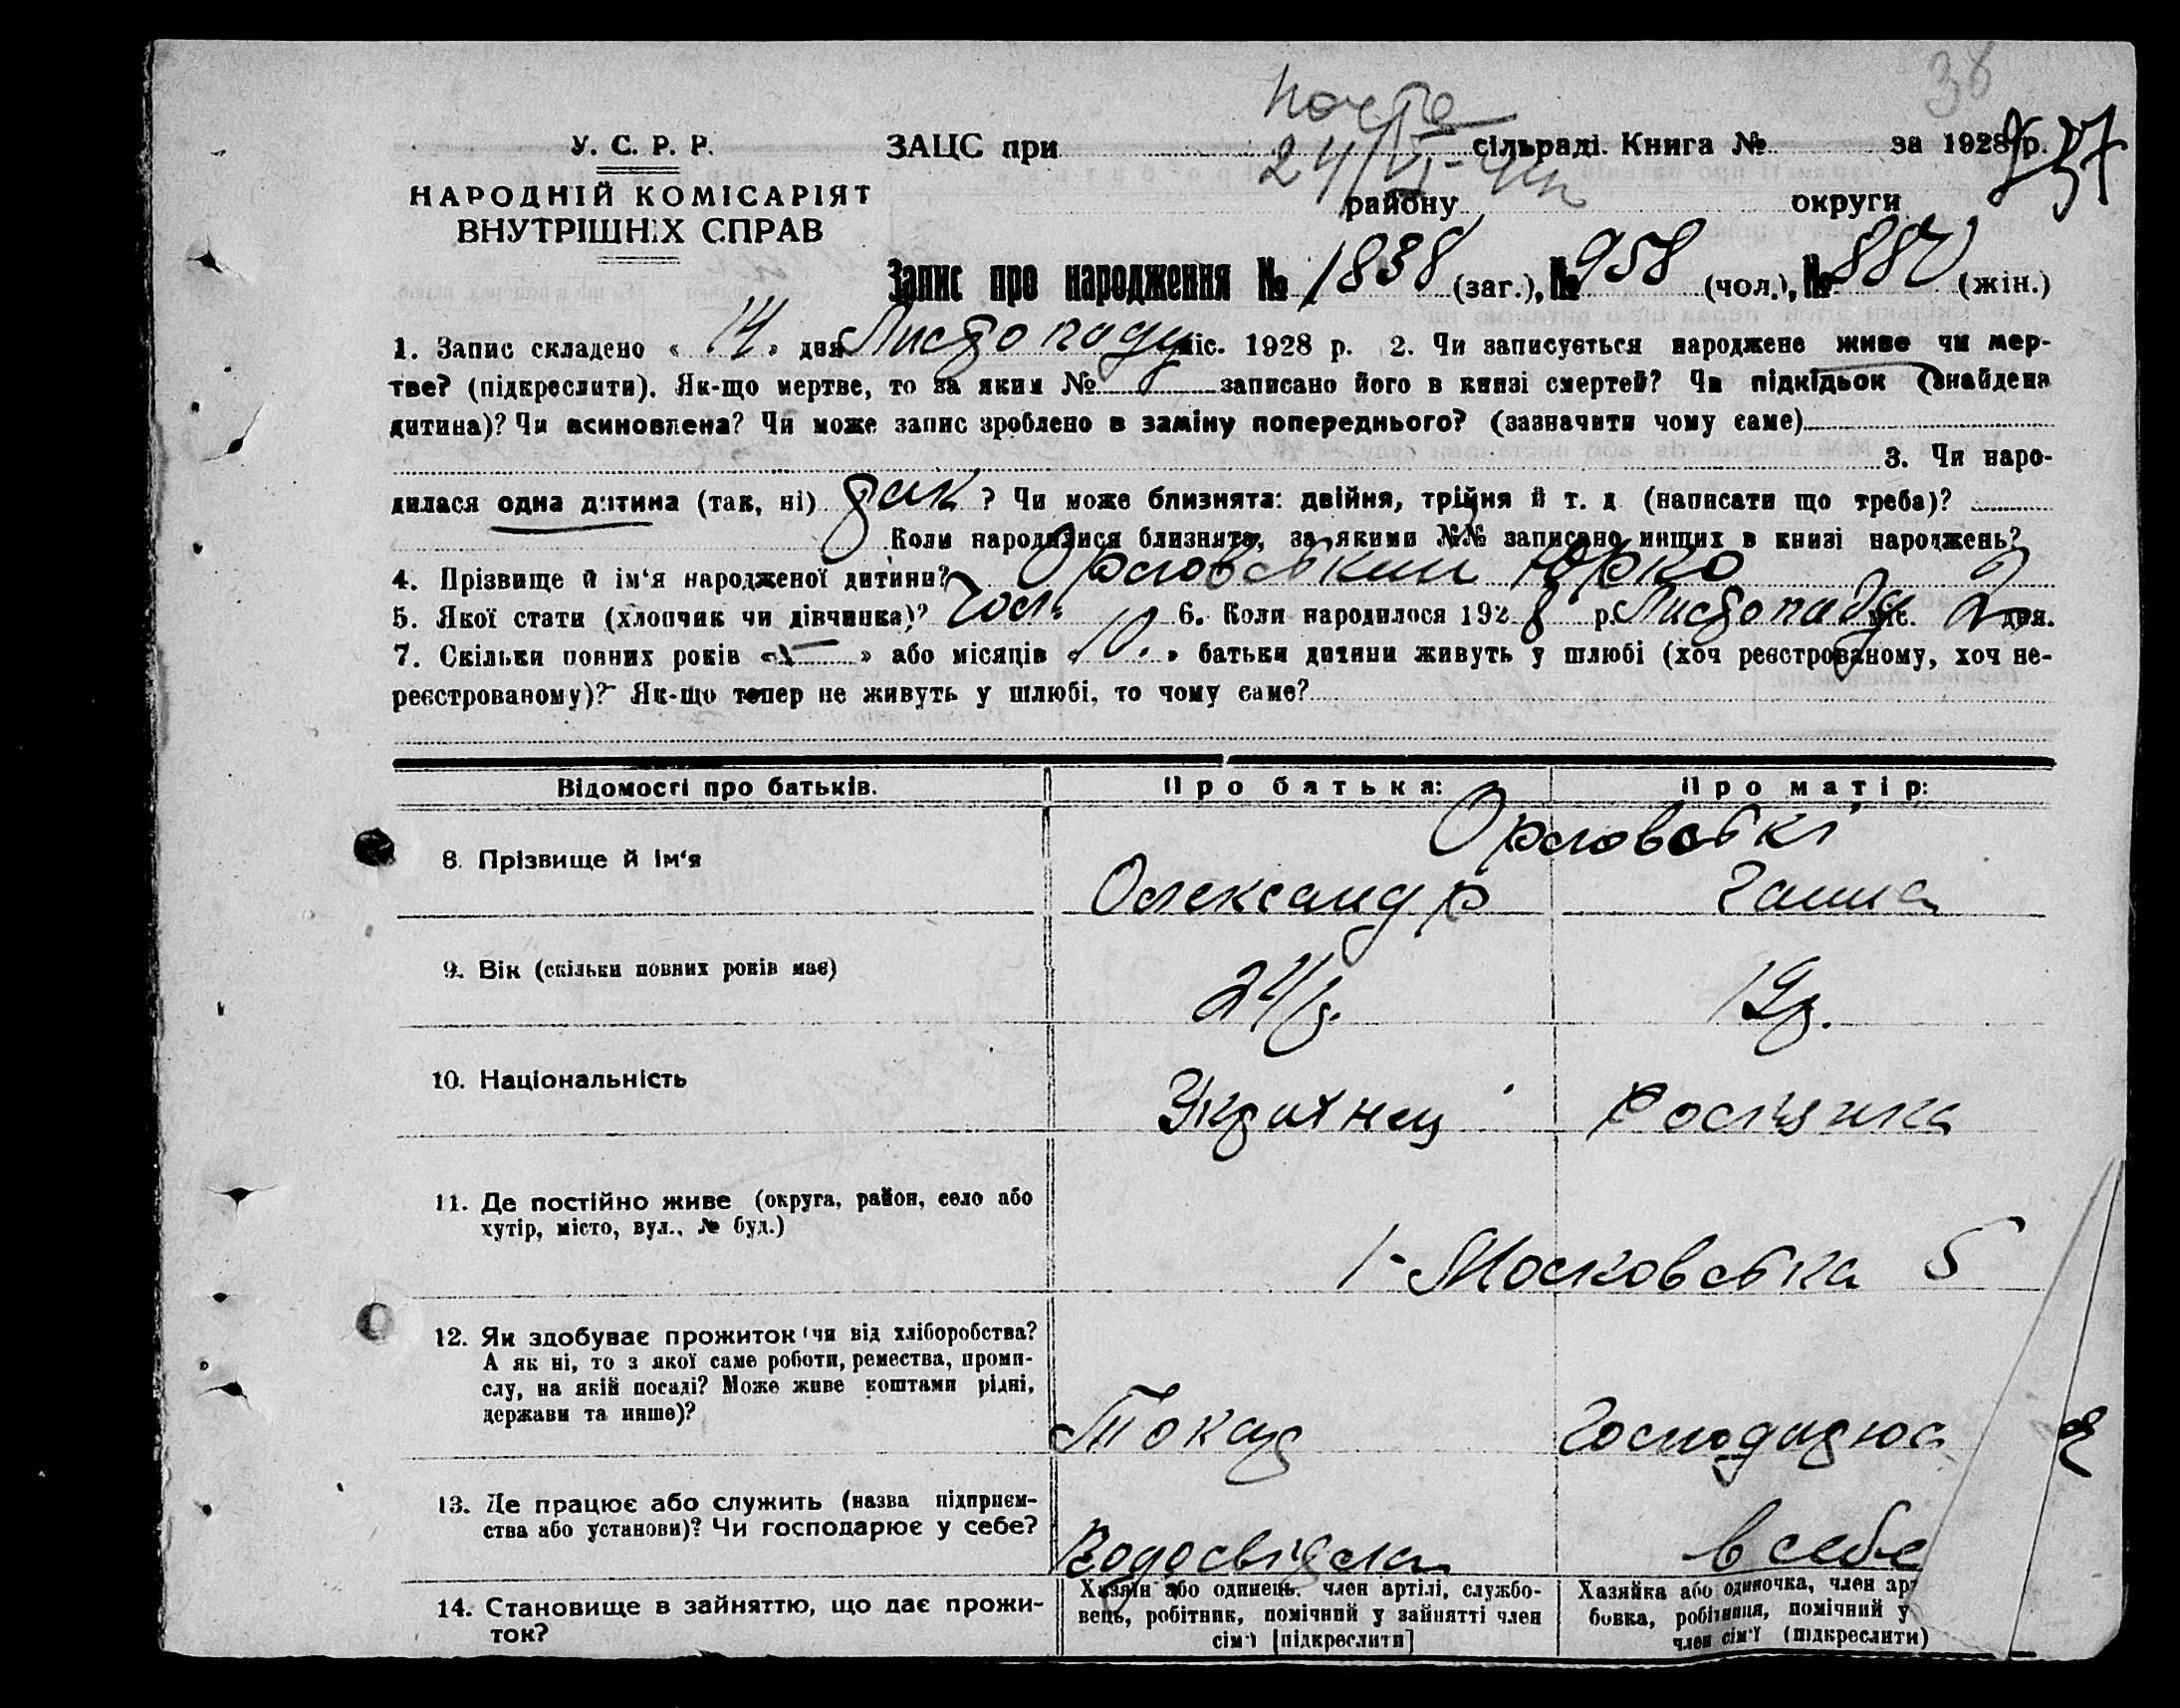 38
почта
24/VI-
У. С. Р. Р.
НАРОДНІЙ КОМІСАРІЯТ
ВНУТРІШНІХ СПРАВ
ЗАЦС при сільраді. Книга № за 1928 р.
району округи
Запис про народження № 1838 (заг.), № 958 (чол.), № 880 (жін.)
1. Запис складено « 14 » дня Листопаду міс. 1928 р. 2. Чи записується народжене живе чи мер-
тве? (підкреслити). Як-що мертве, то за яким № записано його в книзі смертей? Чи підкідьок (знайдена
дитина)? Чи всиновлена? Чи може запис зроблено в заміну попереднього? (зазначити чому саме)
3. Чи наро-
дилася одна дитина (так, ні) так ? Чи може близнята: двійня, трійня й т. д (написати що треба)?
Коли народилися близнята, за якими №№ записано инших в книзі народжень?
4. Прізвище й ім'я народженої дитини? Орловський Юрко
5. Якої стати (хлопчик чи дівчинка)? чол. 6. Коли народилося 1928 р. Листопаду міс. 2 дня.
7. Скільки повних років « » або місяців « 10. » батьки дитини живуть у шлюбі (хоч реєстрованому, хоч не-
реєстрованому)? Як-що тепер не живуть у шлюбі, то чому саме?
Відомості про батьків. Про батька: Про матір:
Орловські
8. Прізвище й ім'я Олександр Ганна
9. Вік (скільки повних років має) 24р. 19р.
10. Національність Українец Росіянка
11. Де постійно живе (округа, район, село або
хутір, місто, вул., № буд.)
1-Московська 5
12. Як здобуває прожиток (чи від хліборобства?
А як ні, то з якої саме роботи, ремества, проми-
слу, на якій посаді? Може живе коштами рідні,
держави та инше)?
Токар Господарює
13. Де працює або служить (назва підприєм-
ства або установи)? Чи господарює у себе?
Водосвітла в себе
14. Становище в зайняттю, що дає прожи-
ток?
Хазяїн або одинець, член артілі, службо-
вець, робітник, помічний у зайнятті член
сім'ї [підкреслити]
Хазяйка або одиночка, член ар
бовка, робітниця, помічний у
член сім'ї (підкреслити)